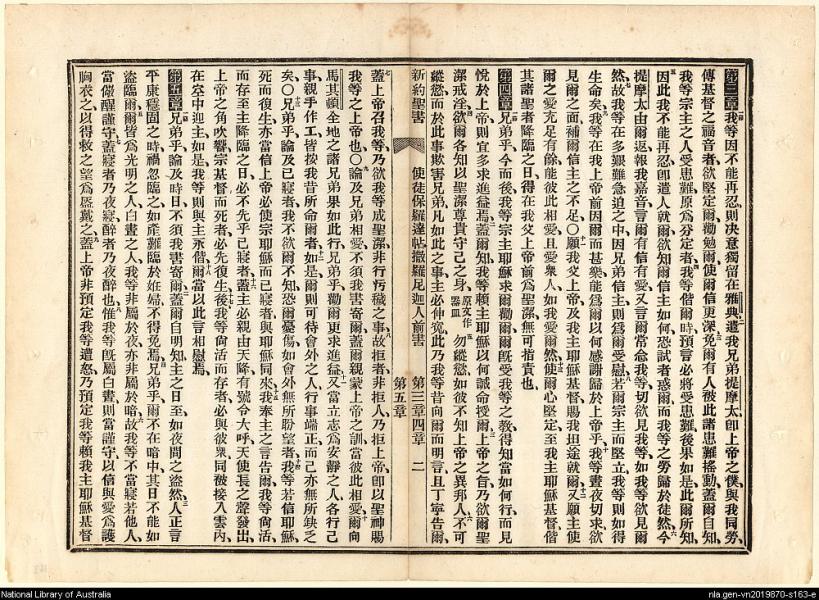 第三章我等因不能再忍則决意獨留在雅典遣我兄弟提摩太卽上帝之僕與我同勞、
傳基督之福音者、欲堅定爾、勸勉爾、使爾信更深、免爾有人被此諸患難搖動、蓋爾自知
我等宗主之人受患難、原爲分定者、我等偕爾時、預言必將受患難、後果如是、此爾所知、
因此我不能再忍、卽遣人就爾、欲知爾信主如何、恐試者惑爾、而我等之勞歸於徒然、今
提摩太由爾返、報我嘉音、言爾有信有愛、又言爾常念我等、切欲見我等、如我等欲見爾
然、故我等在多艱難急迫之中、因兄弟信主、則爲爾受慰、若爾宗主而堅立、我等則如得
生命矣、我等在我上帝前、因爾而甚樂、能爲爾以何感謝歸於上帝乎、我等晝夜切求欲
見爾之面、補爾信主之不足〇願我父上帝、及我主耶穌基督、賜我坦途就爾、又願主使
爾之愛充足有餘、能彼此相愛、且愛衆人、如我愛爾然、使爾心堅定、至我主耶穌基督偕
其諸聖者降臨之日、得在我父上帝前爲聖潔、無可指責也、
第四章兄弟乎、今而後我等宗主耶穌求爾勸爾、爾旣受我等之教、得知當如何行而見
悅於上帝、則宜多求進益焉、蓋爾知我等賴主耶穌以何誡命授爾、上帝之旨、乃欲爾聖
潔、戒淫欲、爾各知以聖潔尊貴守己之身、原文作器皿勿縱慾如彼不知上帝之異邦人、不可
縱慾而於此事欺害兄弟、凡如此之事、主必伸寃、此乃我等昔向爾而明言、且丁寧告爾、
新約聖書 使徒保羅達帖撒羅尼迦人前書 第三章四章 第五章 二
蓋上帝召我等、乃欲我等成聖潔、非行污穢之事、故拒者非拒人、乃拒上帝、卽以聖神賜
我等之上帝也、〇論及兄弟相愛、不須我書寄爾、蓋爾親蒙上帝之訓、當彼此相愛、爾向
馬其頓全地之諸兄弟果如此行、兄弟乎、勸爾更求進益、又當立志爲安靜之人、各行己
事、親手作工、皆按我昔所命爾者、如是、爾則可待會外之人、行事端正、而己亦無所缺乏
矣、〇兄弟乎、論及已寢者、我不欲爾不知、恐爾憂傷、如會外無所盼望者、我等若信耶穌
死而復生、亦當信上帝必使宗耶穌而已寢者、與耶穌同來、我奉主之言告爾、我等尙活
而存至主降臨之日、必不先乎已寢者、蓋主必親由天降、有號令大呼、天使長之聲發出、
上帝之角吹響、宗基督而死者、必先復生、後我等尙活而存者、必與彼衆同被接入雲內、
在空中迎主、如是、我等則與主永偕、爾當以此言相慰焉、
第五章兄弟乎、論及時日、不須我書寄爾、蓋爾自明知主之日至、如夜間之盜然、人正言
平康穩固之時、禍忽臨之、如產難臨於姙婦、不得免焉、兄弟乎、爾不在暗中、其日不能如
盜臨爾、爾皆爲光明之人、白晝之人、我等非屬於夜、亦非屬於暗、故我等不當寢若他人、
當儆醒謹守、蓋寢者乃夜寢、醉者乃夜醉也、惟我等旣屬白晝、則當謹守、以信與愛爲護
胸衣之、以得救之望爲盔戴之、蓋上帝非預定我等遭怒、乃預定我等賴我主耶穌基督
National Library of Australia
nla.gen-vn2019870-s163-e